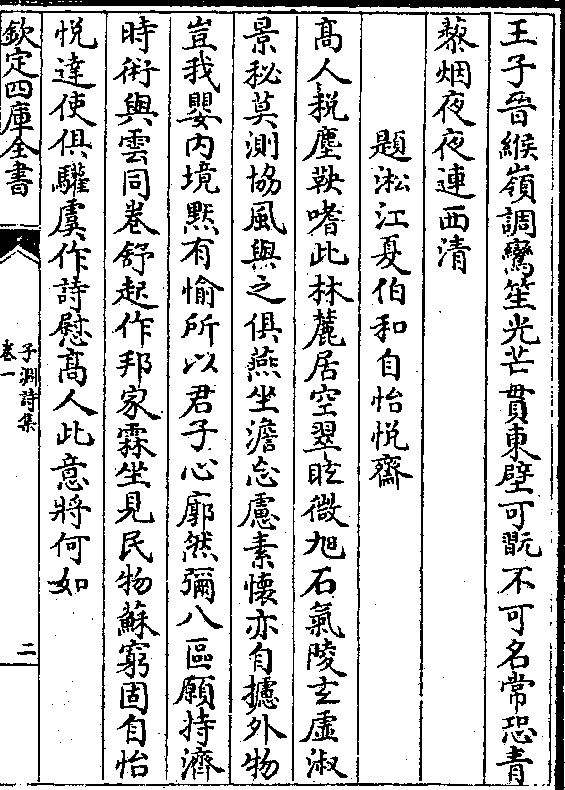 王子晉緱嶺調鸞笙光芒貫東壁可翫不可名常恐青
藜烟夜夜連西清
題淞江夏伯和自怡悦齋
髙人税塵鞅嗜此林麓居空翠眩微旭石氣陵玄虚淑
景秘莫測協風與之俱燕坐澹忘慮素懷亦自攄外物
豈我嬰内境黙有愉所以君子心廓然彌八區願持濟
時術與雲同卷舒起作邦家霖坐見民物蘇窮固自怡
悦達使俱驩虞作詩慰髙人此意將何如
欽定四庫全書
子淵詩集
卷一
二